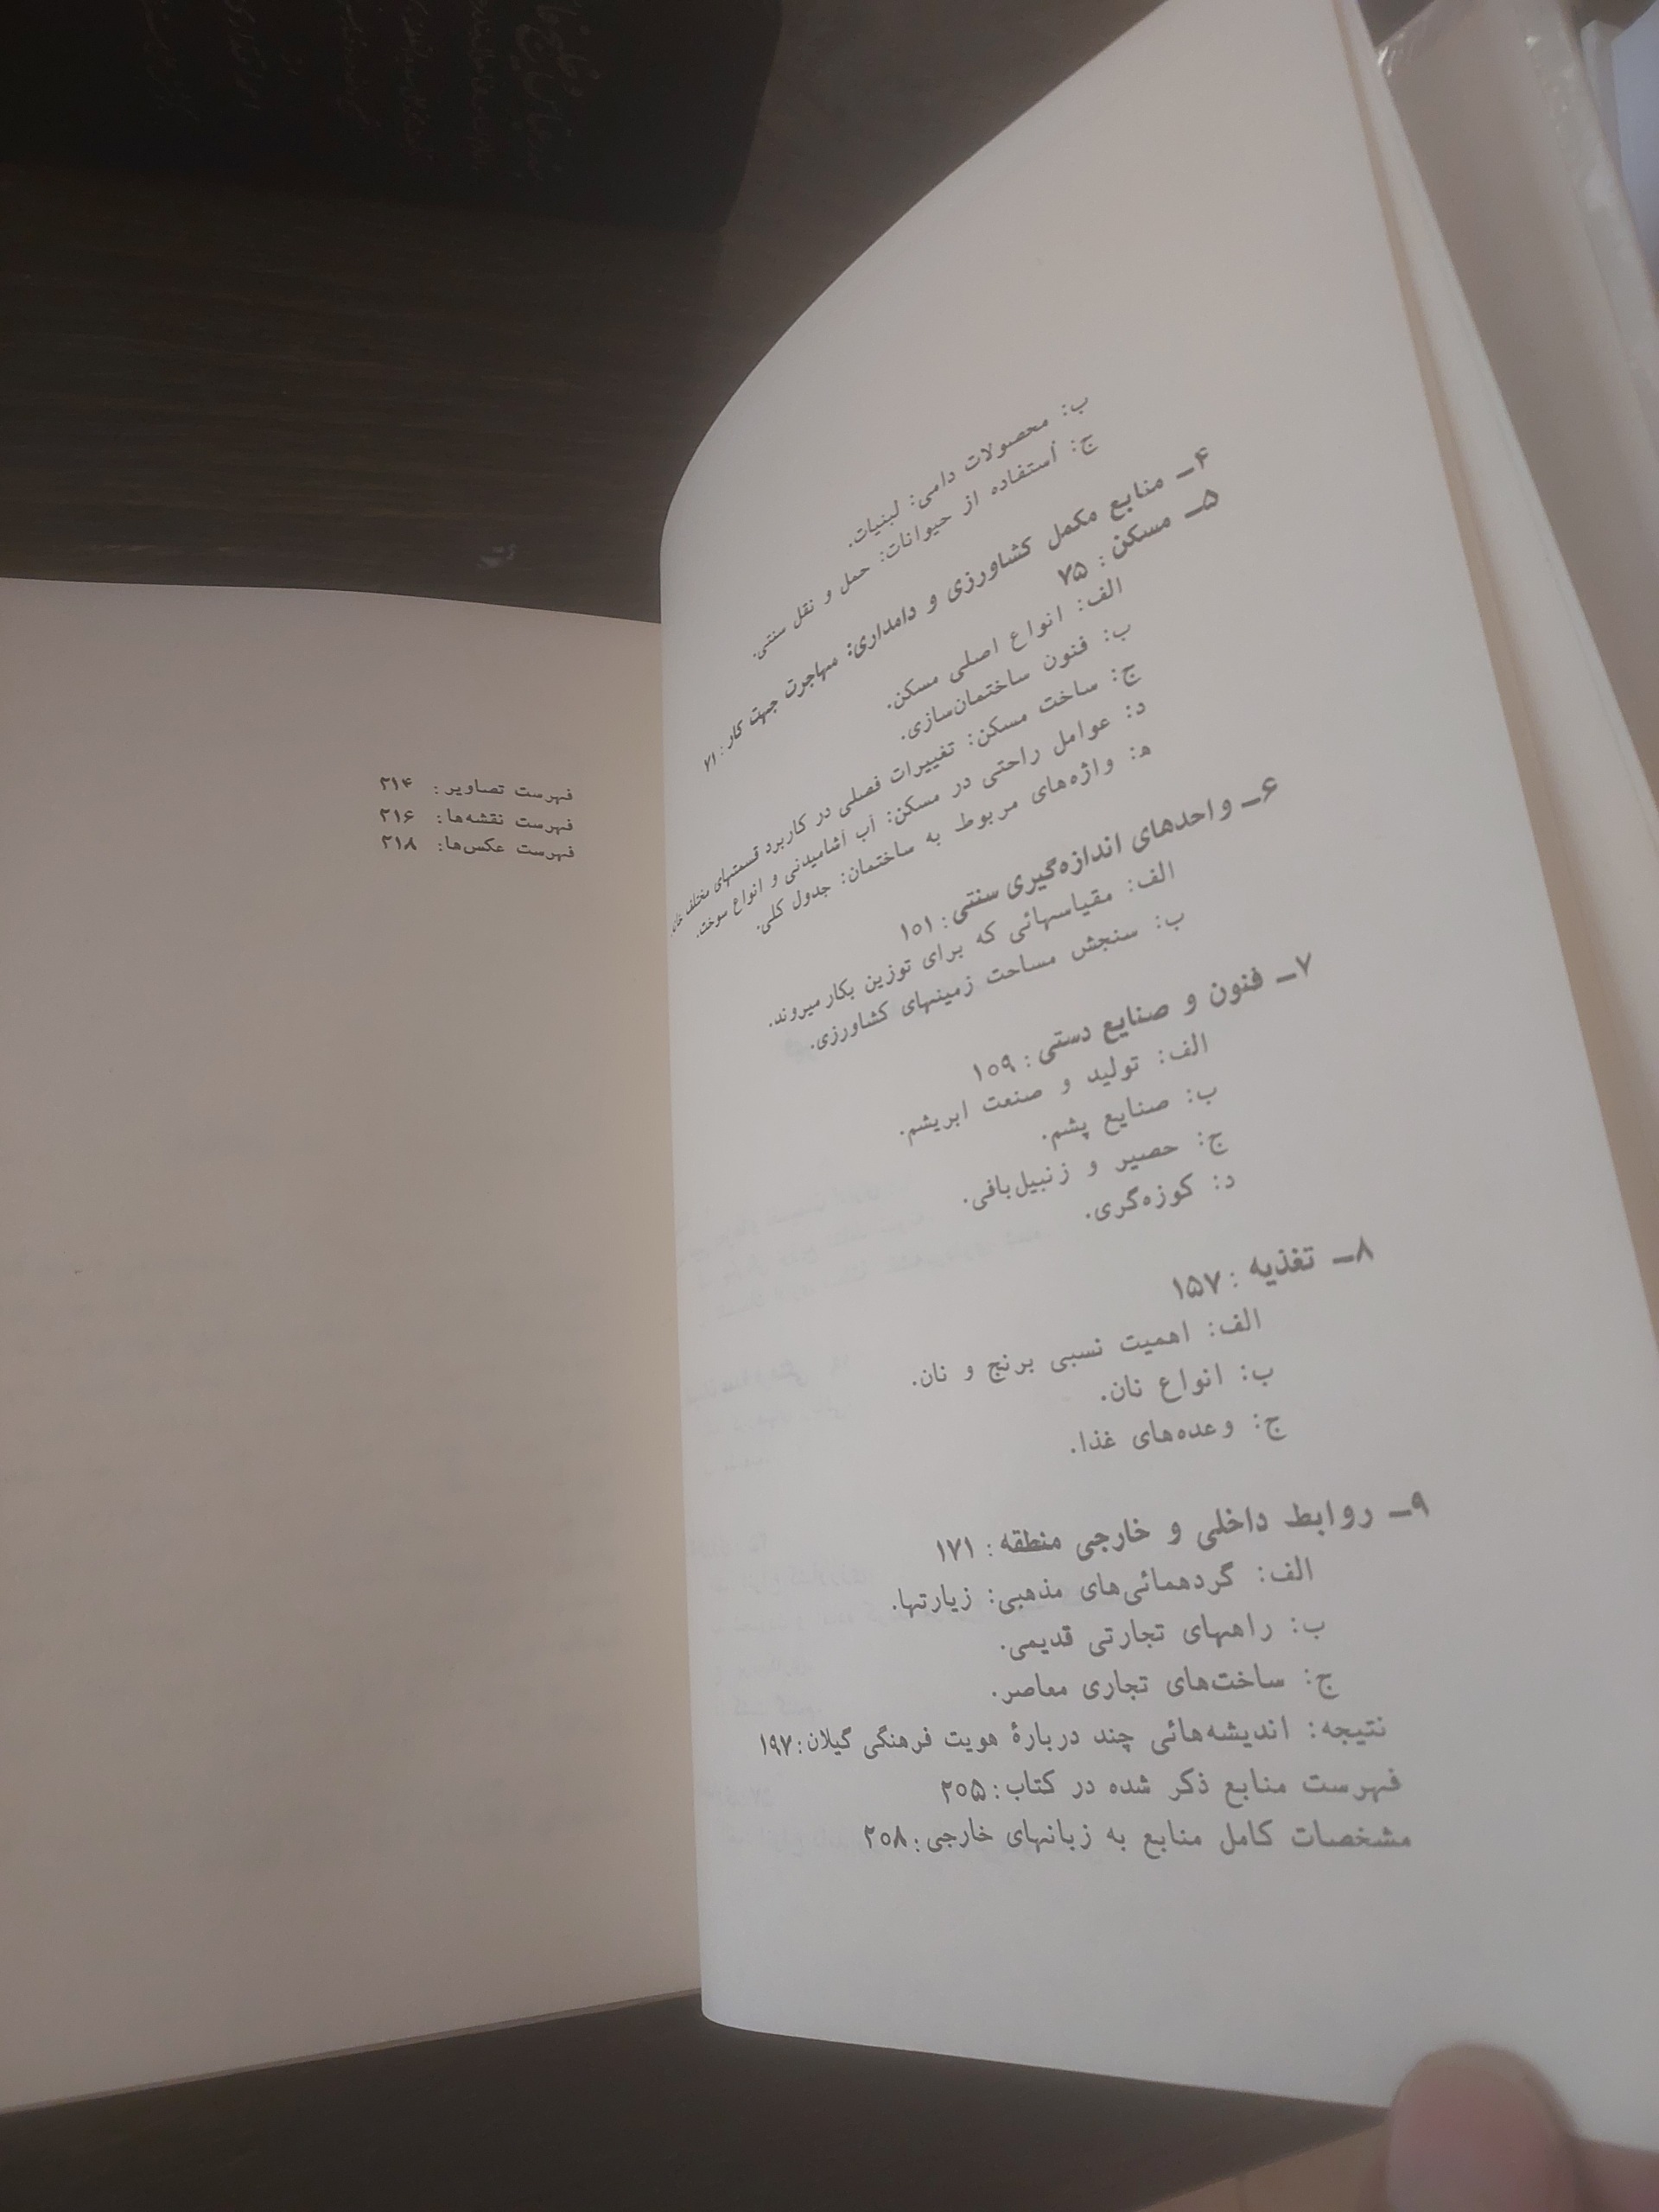 ب: محصولات دامی: لبنیات.
ج: استفاده از حیوانات: حمل و نقل سنتی.
۴ـ منابع مکمل کشاورزی و دامداری: مهاجرت جهت کار: ۷۱
۵ـ مسکن: ۷۵
الف: انواع اصلی مسکن.
ب: فنون ساختمان‌سازی.
ج: ساخت مسکن: تغییرات فصلی در کاربرد قسمتهای مختلف خانه.
د: عوامل راحتی در مسکن: آب آشامیدنی و انواع سوخت.
ه: واژه‌های مربوط به ساختمان: جدول کلی.
۶ـ واحدهای اندازه‌گیری سنتی: ۱۵۱
الف: مقیاسهائی که برای توزین بکار میروند.
ب: سنجش مساحت زمینهای کشاورزی.
۷ـ فنون و صنایع دستی: ۱۵۹
الف: تولید و صنعت ابریشم.
ب: صنایع پشم.
ج: حصیر و زنبیل‌بافی.
د: کوزه‌گری.
۸ـ تغذیه: ۱۵۷
الف: اهمیت نسبی برنج و نان.
ب: انواع نان.
ج: وعده‌های غذا.
۹ـ روابط داخلی و خارجی منطقه: ۱۷۱
الف: گردهمائی‌های مذهبی: زیارتها.
ب: راههای تجارتی قدیمی.
ج: ساخت‌های تجاری معاصر.
نتیجه: اندیشه‌هائی چند دربارهٔ هویت فرهنگی گیلان: ۱۹۷
فهرست منابع ذکر شده در کتاب: ۲۰۵
مشخصات کامل منابع به زبانهای خارجی: ۲۰۸
فهرست تصاویر: ۲۱۴
فهرست نقشه‌ها: ۲۱۶
فهرست عکس‌ها: ۲۱۸